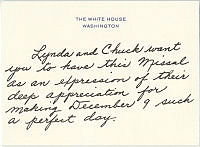 THE WHITE HOUSE
WASHINGTON
Lynda and Chuck want
you to have this Missal
as an expression of their
deep appreciation for
making December 9 such
a perfect day.